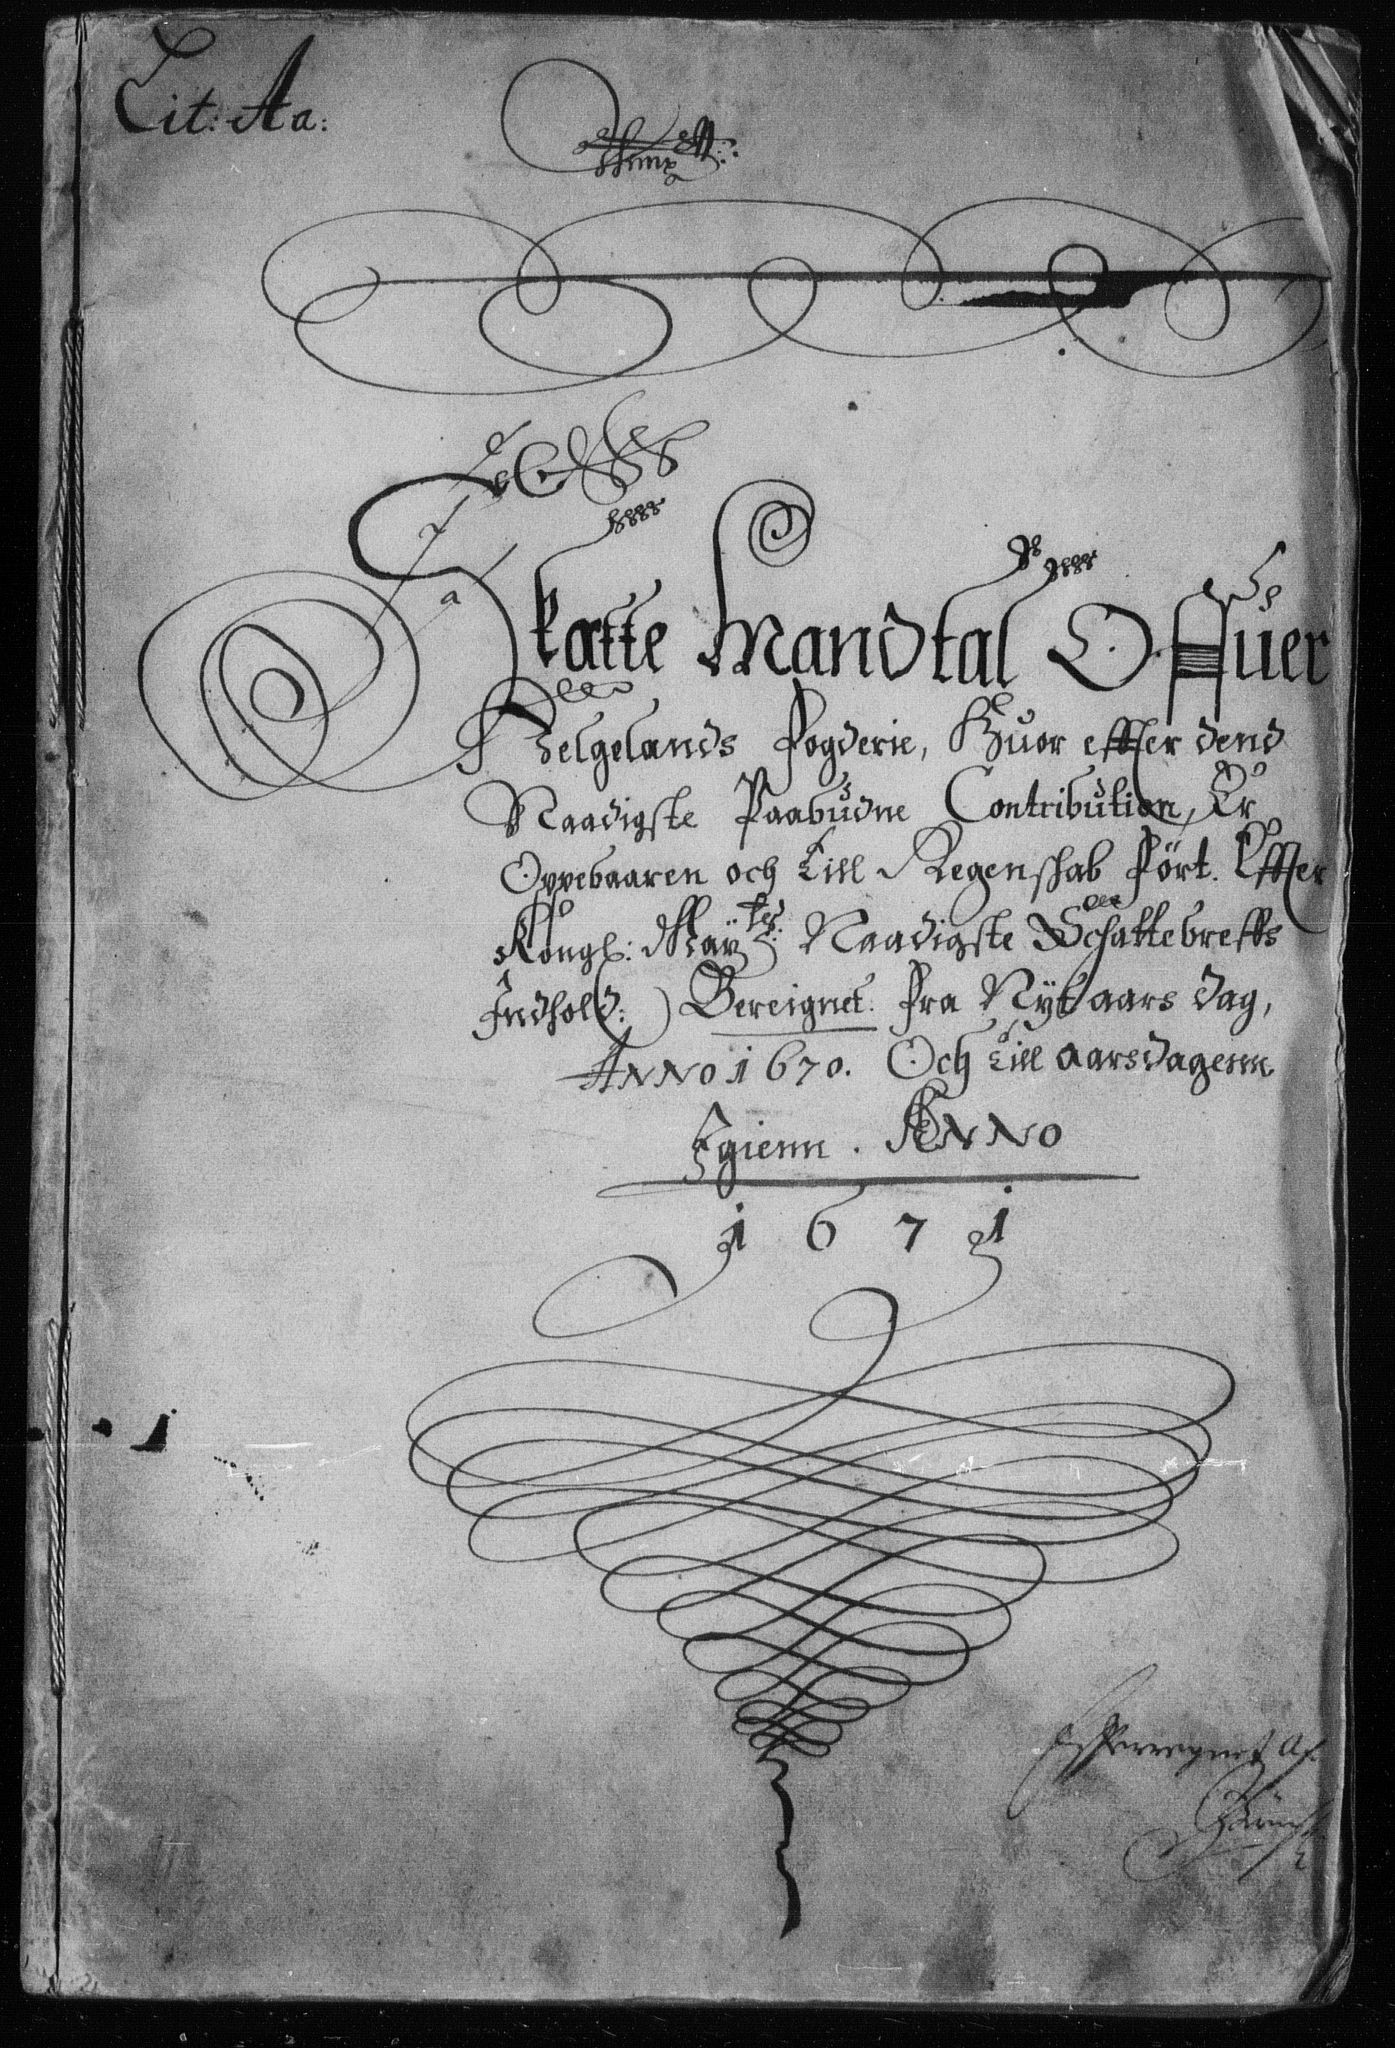 Lit: Aa:
Skatte Mandtal Offuer
Helgelands Fogderie, Huor effter dend
Naadigste Paabudne Contribution, Er
Oppebaaren och till Regenschab ført. Effter
Kongl: Maÿ:ts Naadigste Schattebreffs
Indhold: Bereignet. Fra Nÿt aars dag,
ANNO 1670. Och till aarsdagenn
Igienn. ANNO
1671
Efterregnet Af.